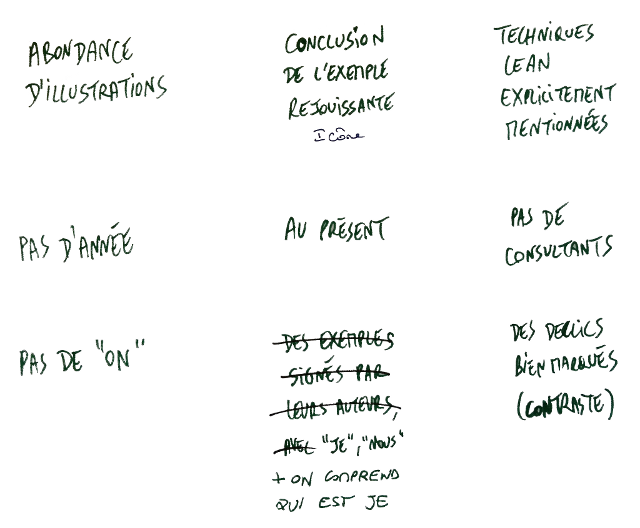 ABONDANCE
D'ILLUSTRATIONS
CONCLUSION
DE L'EXEMPLE
REJOUISSANTE
Icône
TECHNIQUES
LEAN
EXPLICITEMENT
MENTIONNÉES
PAS D'ANNÉE
AU PRÉSENT
PAS DE
CONSULTANTS
PAS DE "ON"
DES EXEMPLES
SIGNÉS PAR
LEURS AUTEURS,
AVEC "JE", "NOUS"
+ ON COMPREND
QUI EST JE
DES DECLICS
BIEN MARQUÉS
(CONTRASTE)